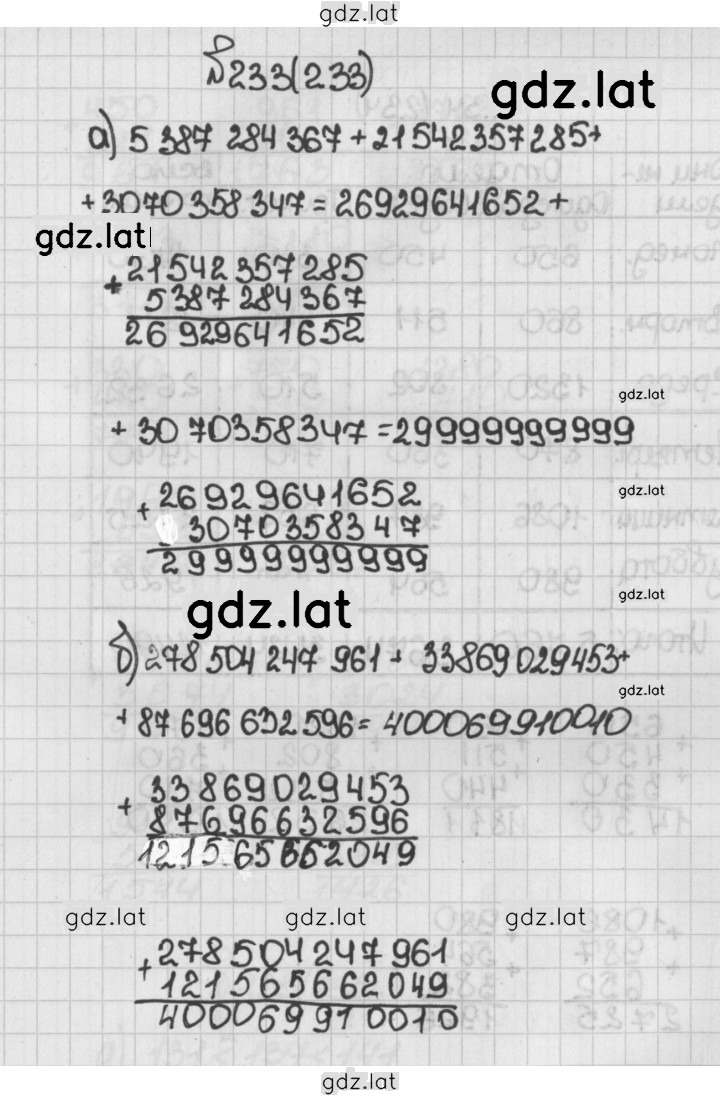 gdz.lat
№233(233)
gdz.lat
а) 5 387 284 367 + 21542357285+
+3070 358 347 = 26929641652 +
gdz.lat
+ 21542 357 285
5 387 284 367
26 929641652
gdz.lat
+ 30 70358347 = 29999999999
+ 26929641652
3070358347
29999999999
gdz.lat
gdz.lat
gdz.lat
б) 278 504 247 961 + 33869029453+
gdz.lat
+ 87696 632596 = 400069910010
+ 33869029453
87696632596
121565662049
gdz.lat gdz.lat gdz.lat
+ 278504247961
121565662049
400069910010
gdz.lat